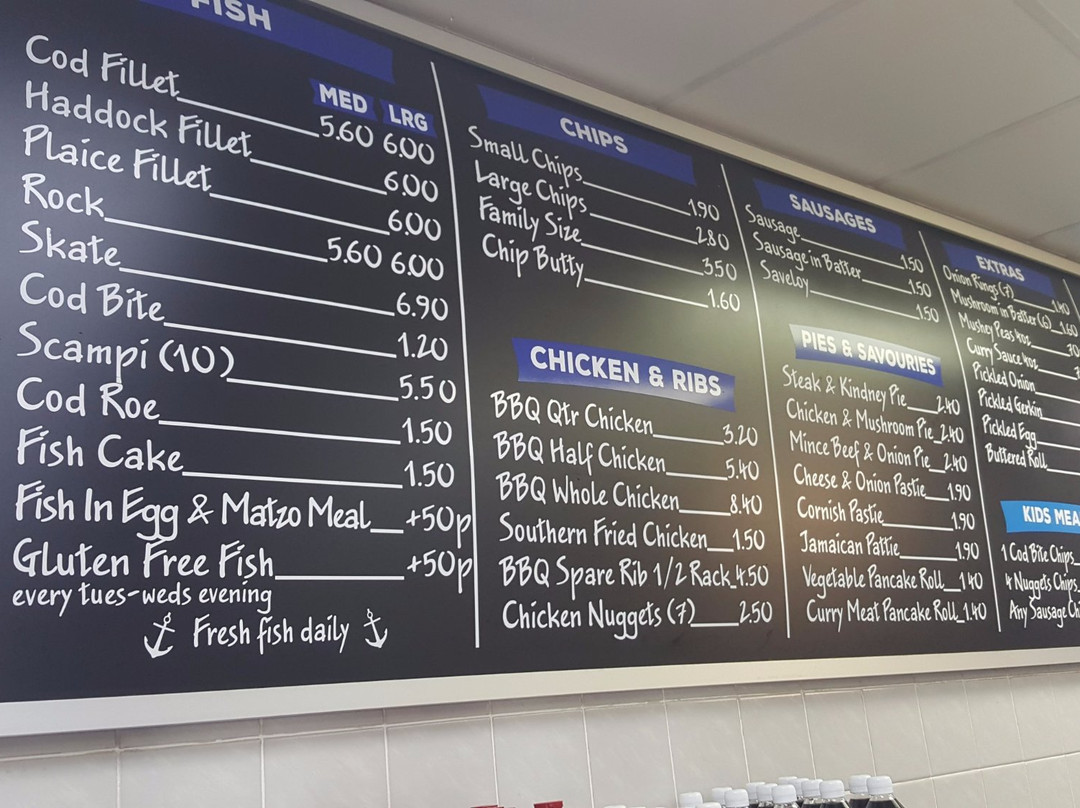 FISH
MED LRG
Cod Fillet 5.60 6.00
Haddock Fillet 6.00
Plaice Fillet 6.00
Rock 5.60 6.00
Skate 6.90
Cod Bite 1.20
Scampi (10) 5.50
Cod Roe 1.50
Fish Cake 1.50
Fish In Egg & Matzo Meal +50p
Gluten Free Fish +50p
every tues-weds evening
Fresh fish daily
CHIPS
Small Chips 1.90
Large Chips 2.80
Family Size 3.50
Chip Butty 1.60
CHICKEN & RIBS
BBQ Qtr Chicken 3.20
BBQ Half Chicken 5.40
BBQ Whole Chicken 8.40
Southern Fried Chicken 1.50
BBQ Spare Rib 1/2 Rack 4.50
Chicken Nuggets (7) 2.50
SAUSAGES
Sausage 1.50
Sausage in Batter 1.50
Saveloy 1.50
PIES & SAVOURIES
Steak & Kindney Pie 2.40
Chicken & Mushroom Pie 2.40
Mince Beef & Onion Pie 2.40
Cheese & Onion Pastie 1.90
Cornish Pastie 1.90
Jamaican Pattie 1.90
Vegetable Pancake Roll 1.40
Curry Meat Pancake Roll 1.40
EXTRAS
Onion Rings (7) 1.40
Mushroom in Batter (6) 1.60
Mushey Peas 4oz
Curry Sauce 4oz
Pickled Onion
Pickled Gerkin
Pickled Egg
Buttered Roll
KIDS
1 Cod Bite Chips
4 Nuggets Chips
Any Sausage